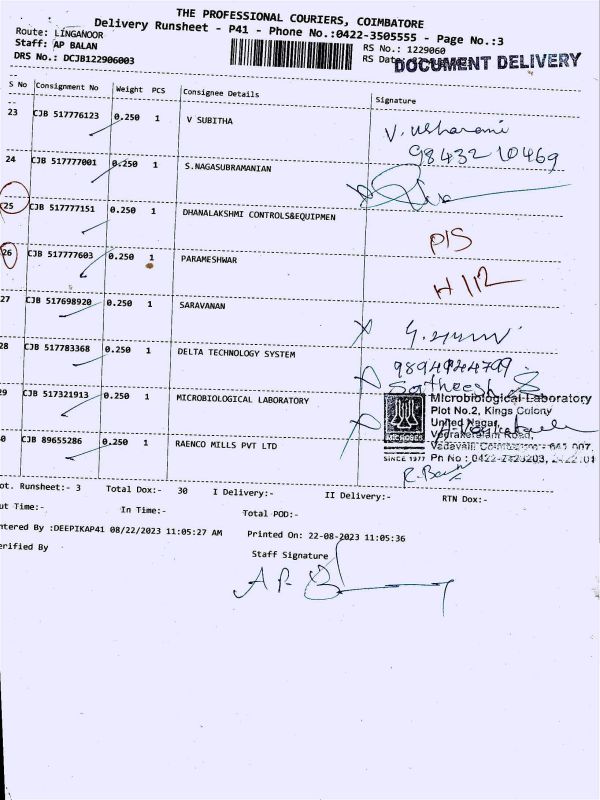 THE PROFESSIONAL COURIERS, COIMBATORE
Delivery Runsheet - P41 - Phone No.:0422-3505555 - Page No.:3
Route: LINGANOOR
Staff: AP BALAN
DRS No.: DCJB122906003
RS No.: 1229060
RS Date
DOCUMENT DELIVERY
S No Consignment No Weight PCS Consignee Details Signature
23 CJB 517776123 0.250 1 V SUBITHA V. Usharani
9843210469
24 CJB 517777001 0.250 1 S.NAGASUBRAMANIAN
25 CJB 517777151 0.250 1 DHANALAKSHMI CONTROLS&EQUIPMEN DIS
26 CJB 517777603 0.250 1 PARAMESHWAR H/12
27 CJB 517698920 0.250 1 SARAVANAN
28 CJB 517783368 0.250 1 DELTA TECHNOLOGY SYSTEM 9894924799
Satheesh
29 CJB 517321913 0.250 1 MICROBIOLOGICAL LABORATORY
Microbiological Laboratory
Plot No.2, Kings Colony
United Nagar,
Vedavalli Coimbatore - 641 007,
MICROBES
SINCE 1977 Ph No : 0422
30 CJB 89655286 0.250 1 RAENCO MILLS PVT LTD
ot. Runsheet:- 3 Total Dox:- 30 I Delivery:- II Delivery:- RTN Dox:-
ut Time:- In Time:- Total POD:-
ntered By :DEEPIKAP41 08/22/2023 11:05:27 AM Printed On: 22-08-2023 11:05:36
erified By
Staff Signature